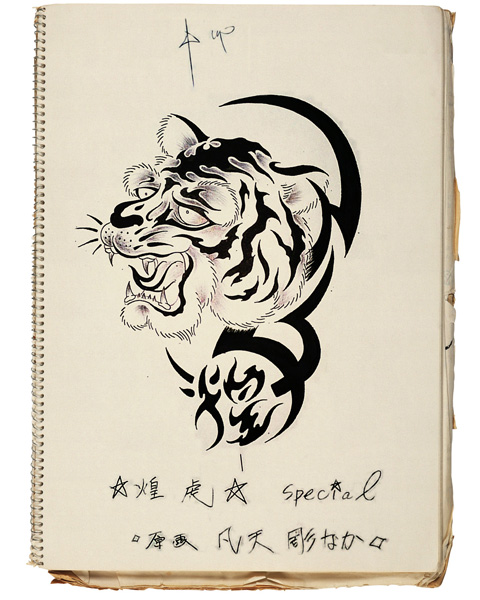 up
☆煌 虎☆ special
○原画 凡天 彫なか○